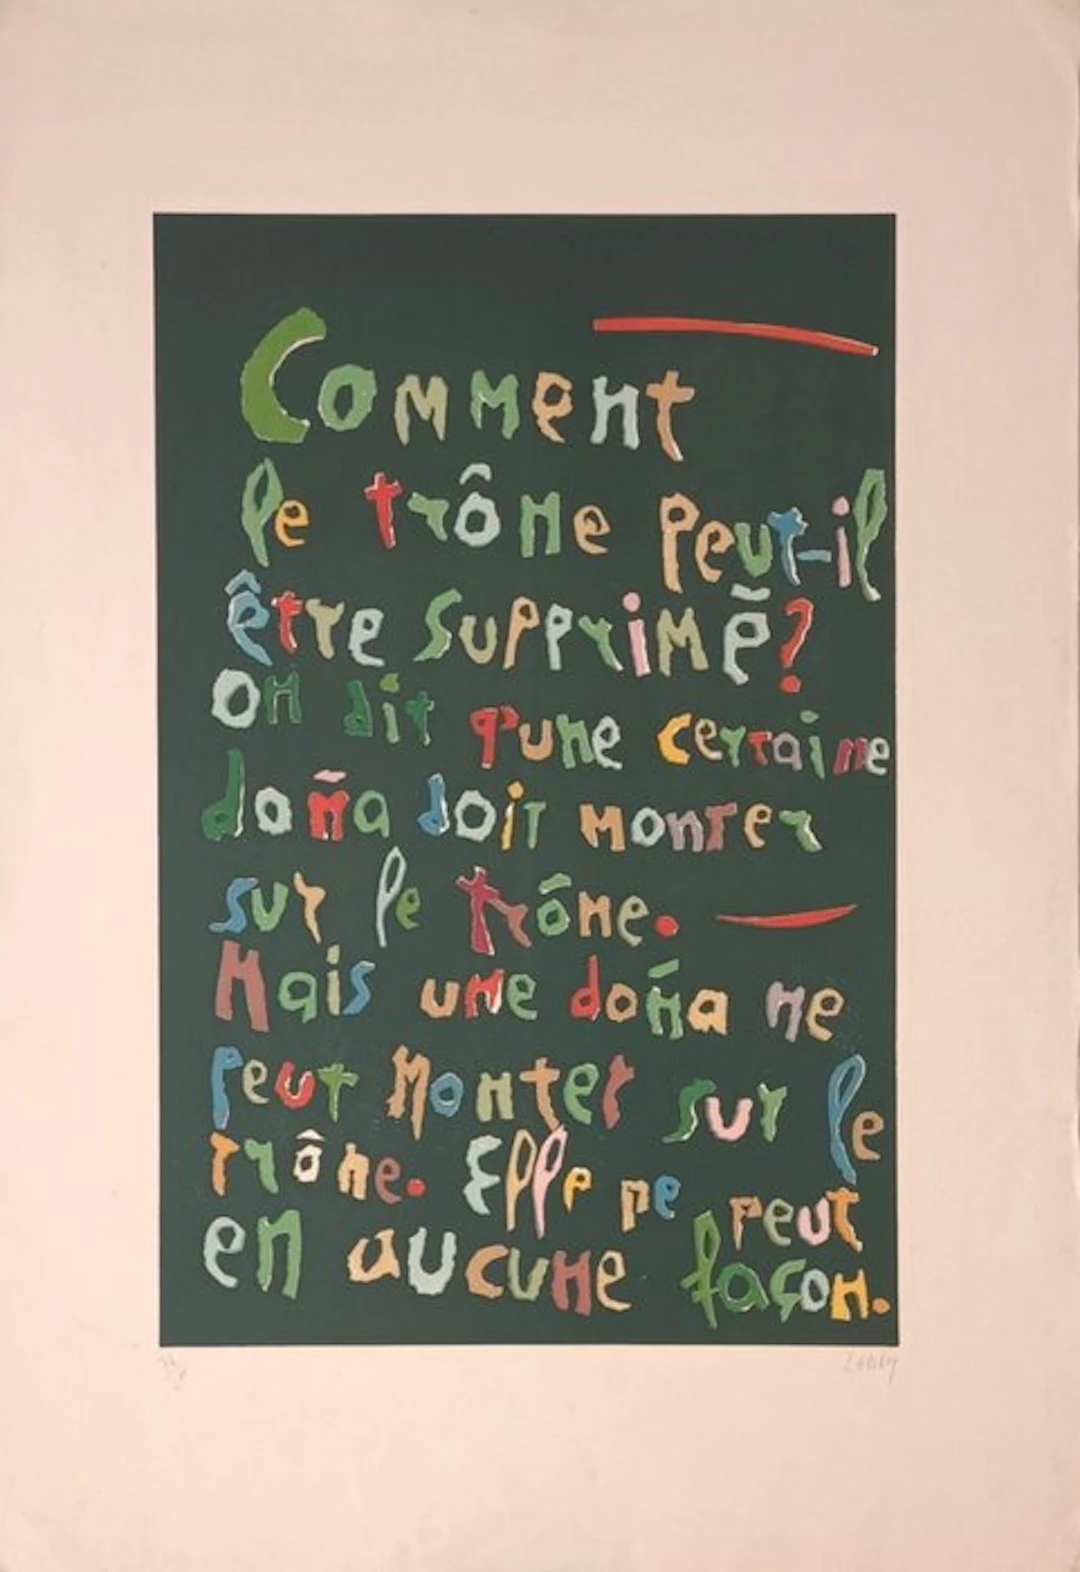 Comment
le trône peut-il
être supprimē?
On dit q'une certaine
doña doit monter
sur le trōne.
Mais une doña ne
peut monter sur le
trône. Elle ne peut
en aucune façon.
Lanskoy